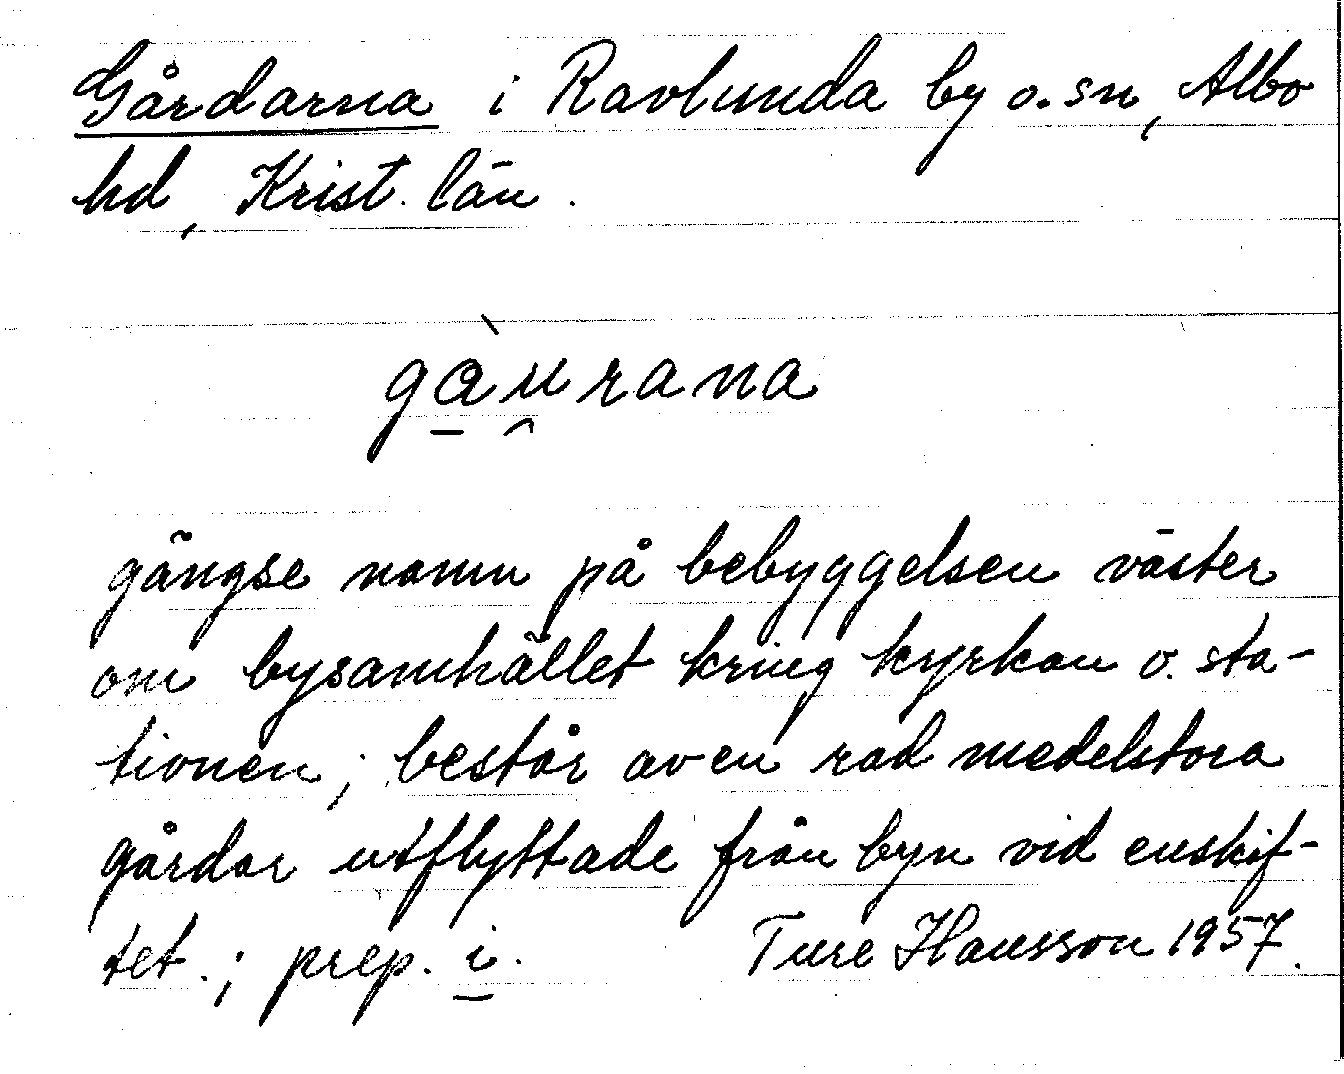 Gårdarna i Ravlunda by o. sn, Albo
hd, Krist. län.
gàu̯rana
gängse namn på bebyggelsen väster
om bysamhället kring kyrkan o. sta-
tionen; består av en rad medelstora
gårdar utflyttade från byn vid enskif-
tet.; prep. i. Ture Hansson 1957.